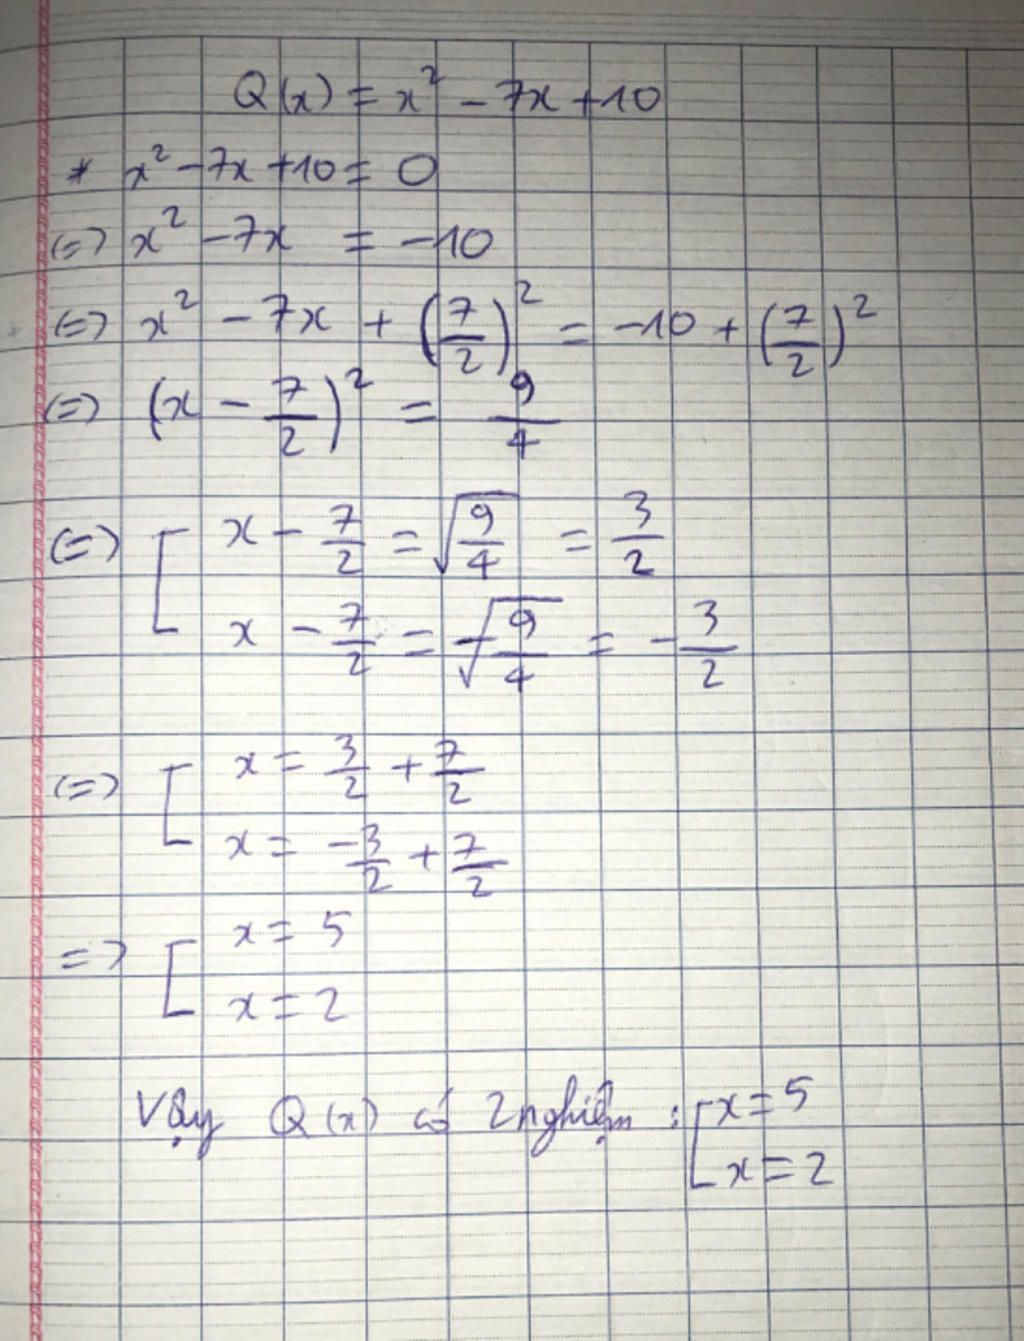 Q(x) = x² - 7x + 10
* x² - 7x + 10 = 0
(=) x² - 7x = -10
(=) x² - 7x + (7/2)² = -10 + (7/2)²
(=) (x - 7/2)² = 9/4
(=) [ x - 7/2 = √(9/4) = 3/2
x - 7/2 = -√(9/4) = -3/2
(=) [ x = 3/2 + 7/2
x = -3/2 + 7/2
=) [ x = 5
x = 2
Vậy Q(x) có 2 nghiệm : [ x = 5
x = 2